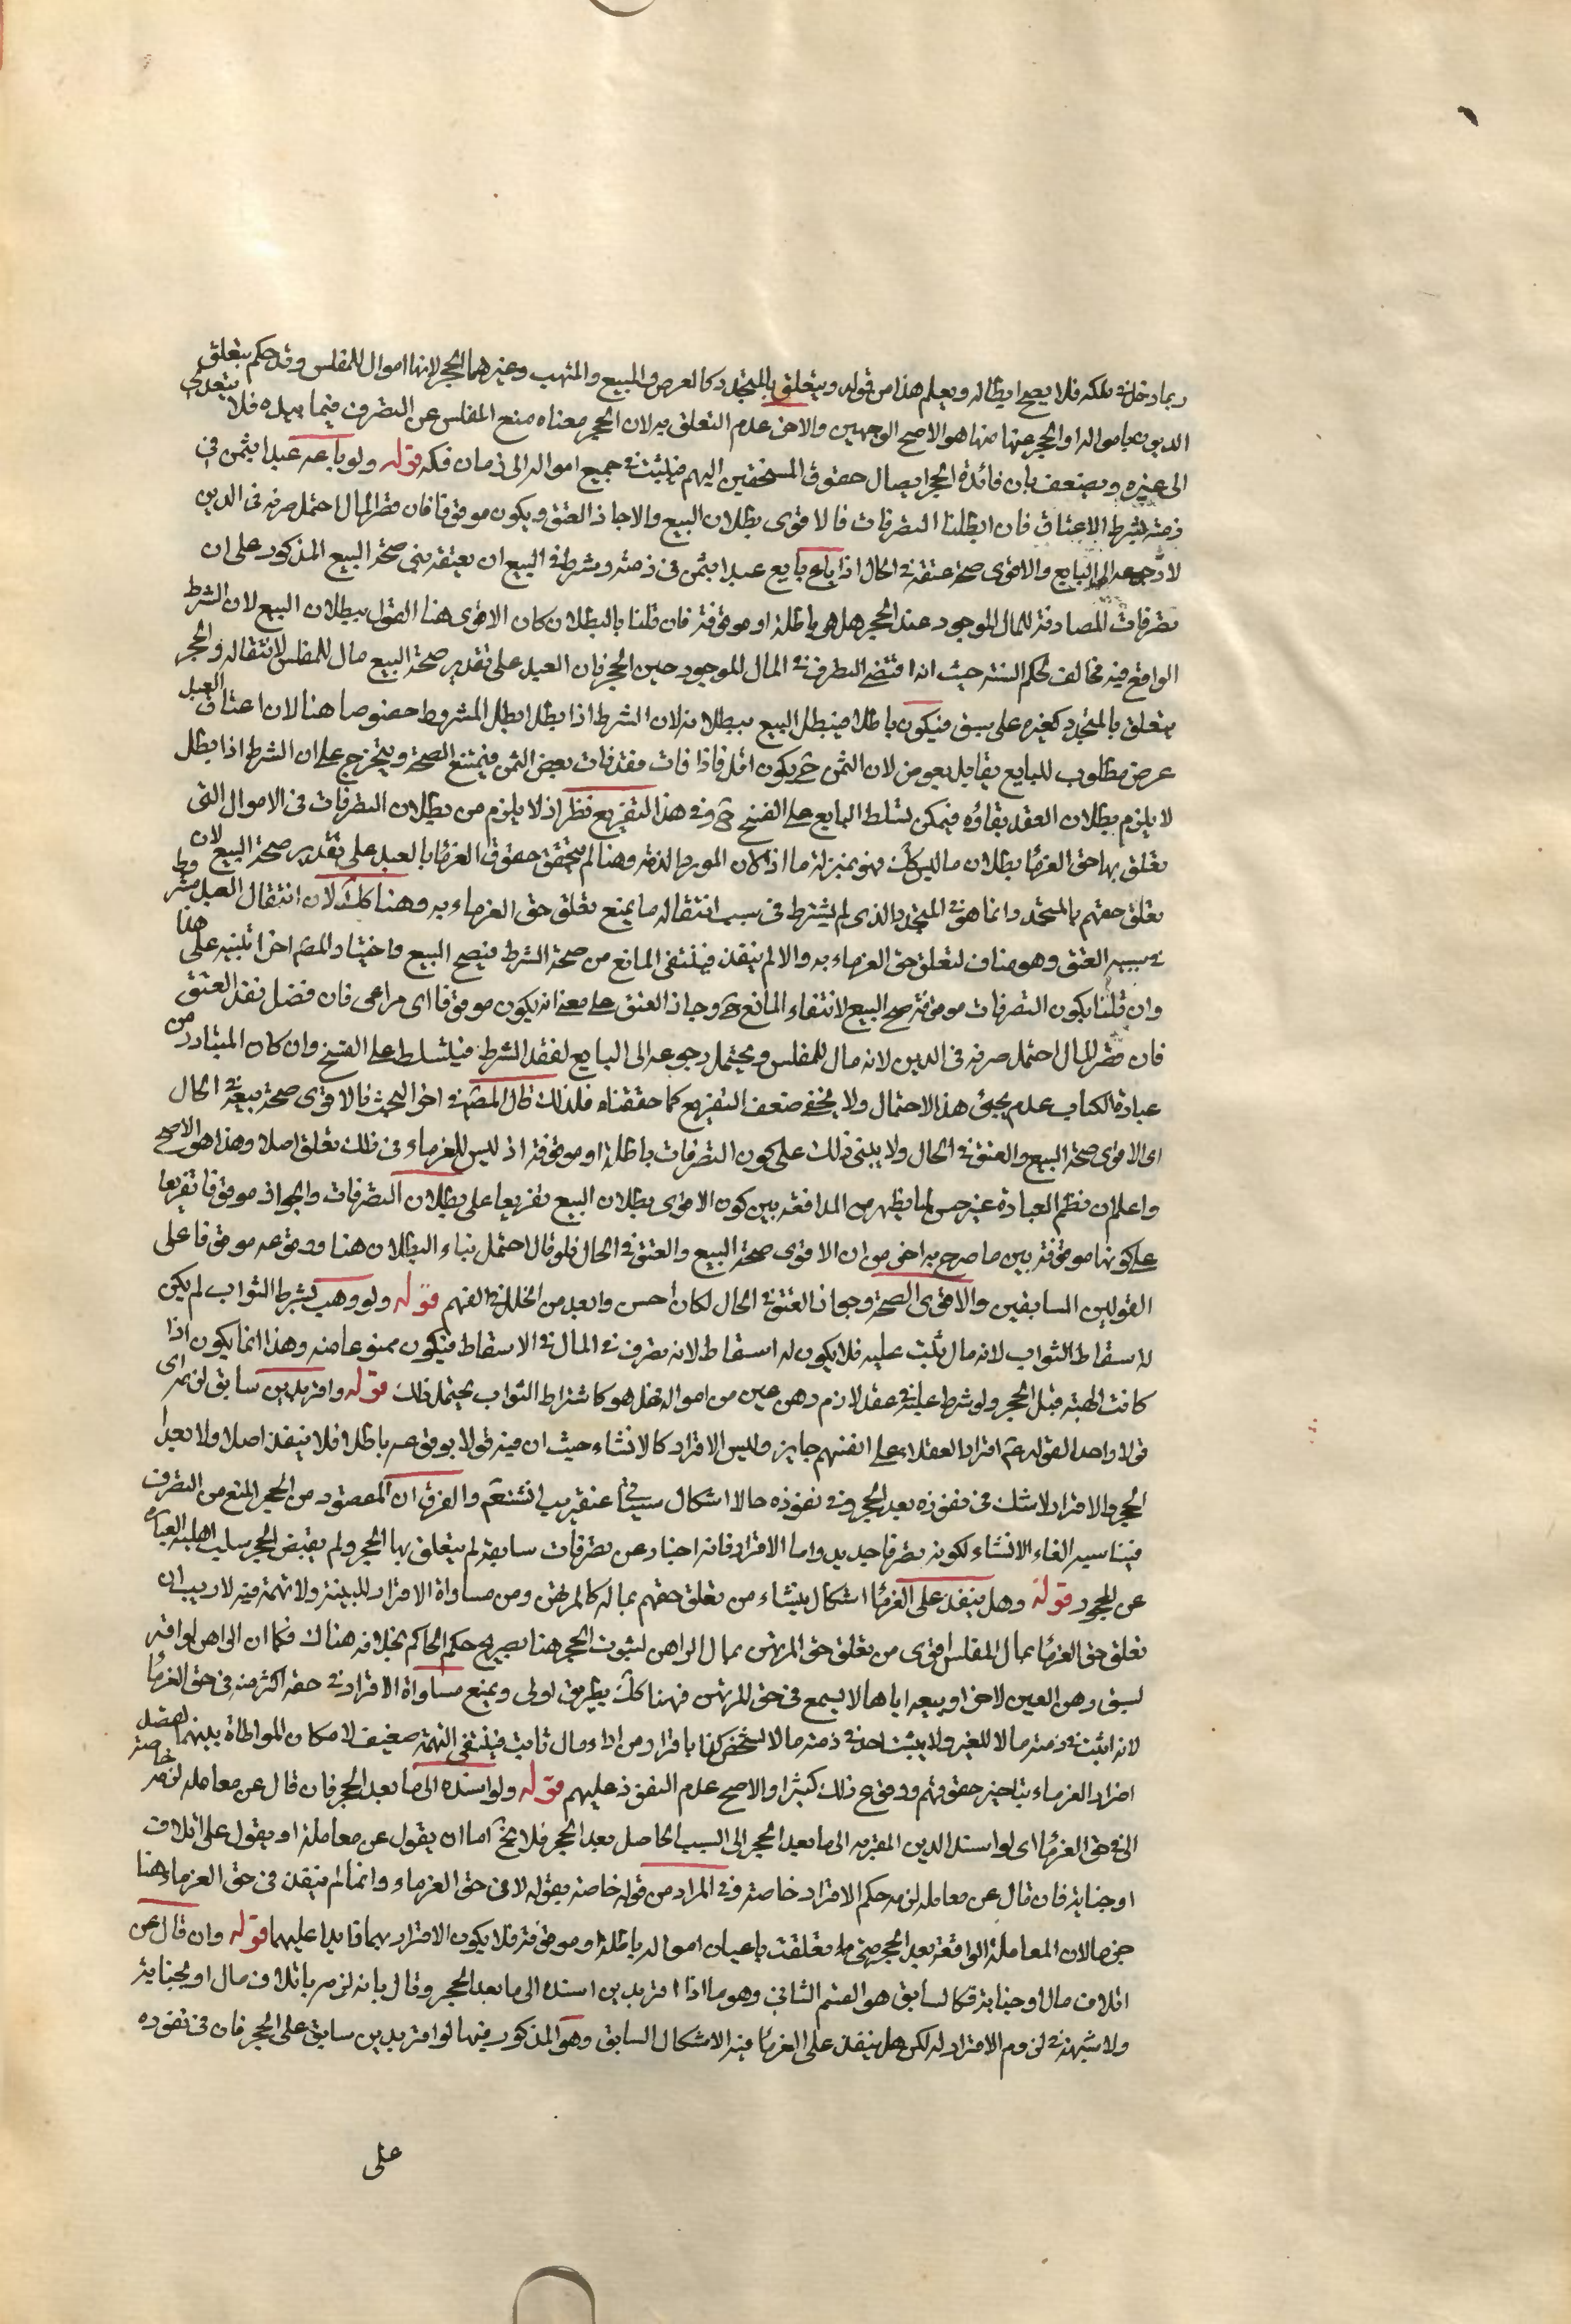 ربما دخل في ملكه فلا يصح ابطاله ويعلم هذا من قوله ويتعلق بالمتجدد كالعرض والمبيع والمتهب وغيرهما الحجر لانها اموال للمفلس وقد حكم بتعلق
الديون بامواله او الحجر عنها منها هو الاصح الوجهين والاخر عدم التعلق به لان الحجر معناه منع المفلس عن التصرف فيما بيده فلا يتعدى
الى غيره ويضعف بان فائدة الحجر ايصال حقوق المستحقين اليهم فيثبت في جميع امواله الى زمان فكه قوله ولو باعه عبدا بثمن في
ذمته بشرط الاعتاق فان ابطلنا التصرفات فالاقوى بطلان البيع والا جاز العتق ويكون موقوفا فان قصر المال احتمل صرفه في الدين
لا رجوعه الى البايع والاقوى صحة عتقه في الحال اذا باع بايع عبدا بثمن في ذمته وشرط في البيع ان يعتقه بني صحة البيع المذكور على ان
تصرفات المصادفة للمال الموجود عند الحجر هل هي باطلة او موقوفة فان قلنا بالبطلان كان الاقوى هنا القول ببطلان البيع لان الشرط
الواقع فيه مخالف لحكم السنة حيث انه اقتضى التصرف في المال الموجود حين الحجر فان العبد على تقدير صحة البيع مال للمفلس لانتقاله والحجر
يتعلق بالمتجدد كغيره على سبق فيكون باطلا فيبطل البيع ببطلانه لان الشرط اذا بطل ابطل المشروط خصوصا هنا لان اعتاق العبد
عرض مطلوب للبايع يقابل بعوض لان الثمن ح يكون اقل فاذا فات فقد فات بعض الثمن فيمتنع الصحة ويتخرج على ان الشرط اذا بطل
لا يلزم بطلان العقد بقاؤه فيمكن تسلط البايع على الفسخ ح وفي هذا التفريع نظر اذ لا يلزم من بطلان التصرفات في الاموال التي
تعلق بها حق الغرما بطلان ما ليس كك فهو بمنزلة ما اذا كان المورد الذمة وهنا لم يتحقق حقوق الغرما بالعبد على تقدير صحة البيع لان
تعلق حقهم بالمتجدد انما هو في المتجدد الذي لم يشترط في سبب انتقاله ما يمنع تعلق حق الغرماء به وهنا كك لان انتقال العبد مشروط
في سببه العتق وهو مناف لتعلق حق الغرماء به والا لم ينفذ فينتفى المانع من صحة الشرط فيصح البيع واختيار المص اخرا تنبيه على هذا
وان قلنا بكون التصرفات موقوفة صح البيع لانتفاء المانع ح وجاز العتق على معنى انه يكون موقوفا اى مراعى فان فضل نفذ العتق
فان قصر المال احتمل صرفه في الدين لانه مال للمفلس ويحتمل رجوعه الى البايع لفقد الشرط فيتسلط على الفسخ وان كان المتبادر من
عبارة الكتاب عدم مجئ هذا الاحتمال ولا يخفى ضعف التفريع كما حققناه فلذلك قال المص في اخر البحث فالاقوى صحة بيعه في الحال
اى الاقوى صحة البيع والعتق في الحال ولا يبنى ذلك على كون التصرفات باطلة او موقوفة اذ ليس للغرماء في ذلك تعلق اصلا وهذا هو الاصح
واعلم ان نظم العبارة غير حسن لما يظهر من المدافعة بين كون الاقوى بطلان البيع تفريعا على بطلان التصرفات والجواز موقوفا تفريعا
على كونها موقوفة بين ما صرح به اخرا من ان الاقوى صحة البيع والعتق في الحال فلو قال احتمل بناء البطلان هنا ووقوعه موقوفا على
القولين السابقين والاقوى الصحة وجواز العتق في الحال لكان احسن وابعد من الخلل في الفهم قوله ولو وهب بشرط الثواب لم يكن
له اسقاط الثواب لانه مال ثبت عليه فلا يكون له اسقاط لانه تصرف في المال في الاسقاط فيكون ممنوعا منه وهذا انما يكون اذا
كانت الهبة قبل الحجر ولو شرط عليه في عقد لازم رهن عين من امواله فهل هو كاشتراط الثواب يحتمل ذلك قوله واقر بدين سابق لزمه اى
قولا واحدا لقوله ع اقرار العقلاء على انفسهم جايز وليس الاقرار كالانشاء حيث ان فيه قولا بوقوعه باطلا فلا ينفذ اصلا ولا بعد
الحجر والاقرار لا شك في نفوذه بعد الحجر وفي نفوذه حالا اشكال سيأتي عنقريب انش تعم والفرق ان المقصود من الحجر المنع من التصرف
فيناسبه الغاء الانشاء لكونه تصرفا جديدا واما الاقرار فانه اخبار عن تصرفات سابقة لم يتعلق بها الحجر ولم يقتض الحجر سلب اهلية العبارة
عن المحجور قوله وهل ينفذ على الغرما اشكال ينشاء من تعلق حقهم بماله كالمرتهن ومن مساواة الاقرار للبينة ولا تهمة فيه لا ريب ان
تعلق حق الغرما بمال المفلس اقوى من تعلق حق المرتهن بمال الراهن لثبوت الحجر هنا بصريح حكم الحاكم بخلافه هناك فكما ان الراهن لو اقر
لسبق رهن العين لاخر او بيعه اياها لا يسمع في حق المرتهن فهنا كك بطريق اولى ويمنع مساواة الاقرار في حقه اكثر منه في حق الغرما
لانه اثبت في ذمته مالا للغير ولا يثبت احد في ذمته مالا لشخص كفا باقرار من اداء مال ثابت فينتفى التهمة ضعيف لامكان المواطاة بينهما لقصد
اضرار الغرماء بتاخير حقوقهم ووقوع ذلك كثيرا والاصح عدم النفوذ عليهم قوله ولو اسنده الى ما بعد الحجر فان قال عن معاملة لزمه خاصة
الى في حق الغرما اى لو اسند الدين المقر به الى ما بعد الحجر الى السبب الحاصل بعد الحجر فلا يخ اما ان يقول عن معاملة او يقول على اتلاف
او جناية فان قال عن معاملة لزمه حكم الاقرار خاصة وفي المراد من قوله خاصة بقوله لا في حق الغرماء وانما لم ينفذ في حق الغرماء هنا
جزما لان المعاملة الواقعة بعد الحجر متى ما تعلقت باعيان امواله باطلة او موقوفة فلا يكون الاقرار بها قايدا عليهما قوله وان قال عن
اتلاف مال او جناية فكالسابق هو القسم الثاني وهو ما اذا اقر بدين اسنده الى ما بعد الحجر وقال بانه لزمه باتلاف مال او بجناية
ولا شبهة في لزوم الاقرار له لكن هل ينفذ على الغرما فيه الاشكال السابق وهو المذكور فيما لو اقر بدين سابق على الحجر فان في نفوذه
على